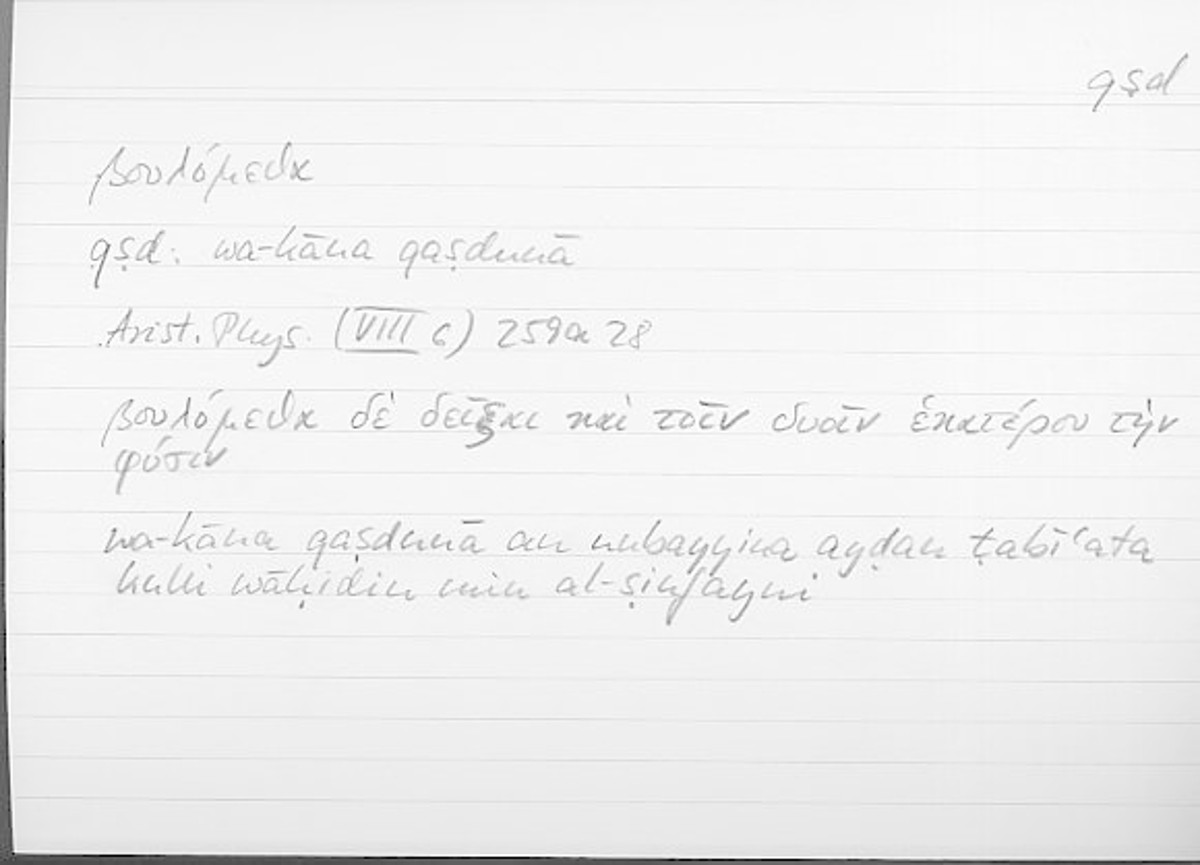 qṣd
βουλόμεθα
qṣd: wa-kāna qaṣdunā
Arist. Phys. (VIII 6) 259a 28
βουλόμεθα δὲ δεῖξαι καὶ τοῖν δυοῖν ἑκατέρου τὴν
φύσιν
wa-kāna qaṣdunā an nubayyina ayḍan ṭabīʿata
kulli wāḥidin min al-ṣinfayni